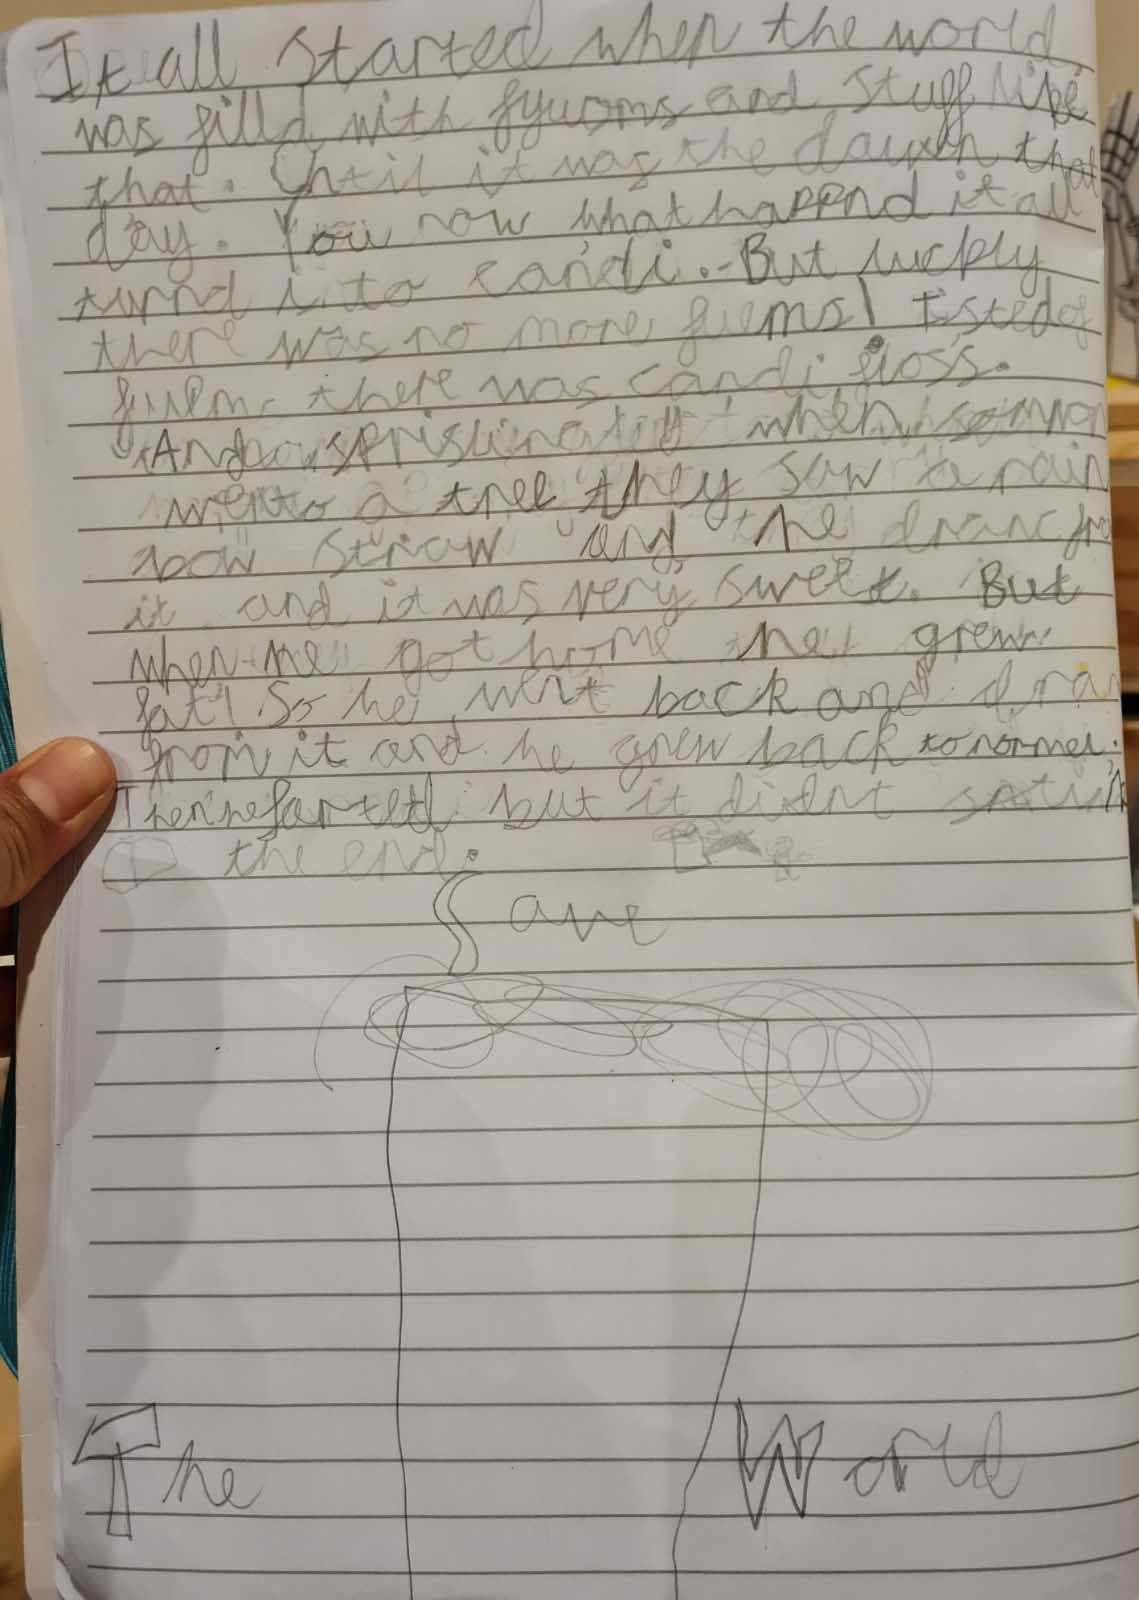 It all started when the world
was filld with fyuoms and stuff like
that. Until it was the dawn that
day. You now what happend it all
turnd into candi. But luckly
there was no more fuems! Isted of
fuems there was candi floss.
And when
went to a tree they saw a rain
bow straw and the dranc fro
it and it was very sweet. But
when he got home he grew
fat! So he went back and dra
from it and he grew back to normel.
Then he farted but it didnt
the end.
Save
The World